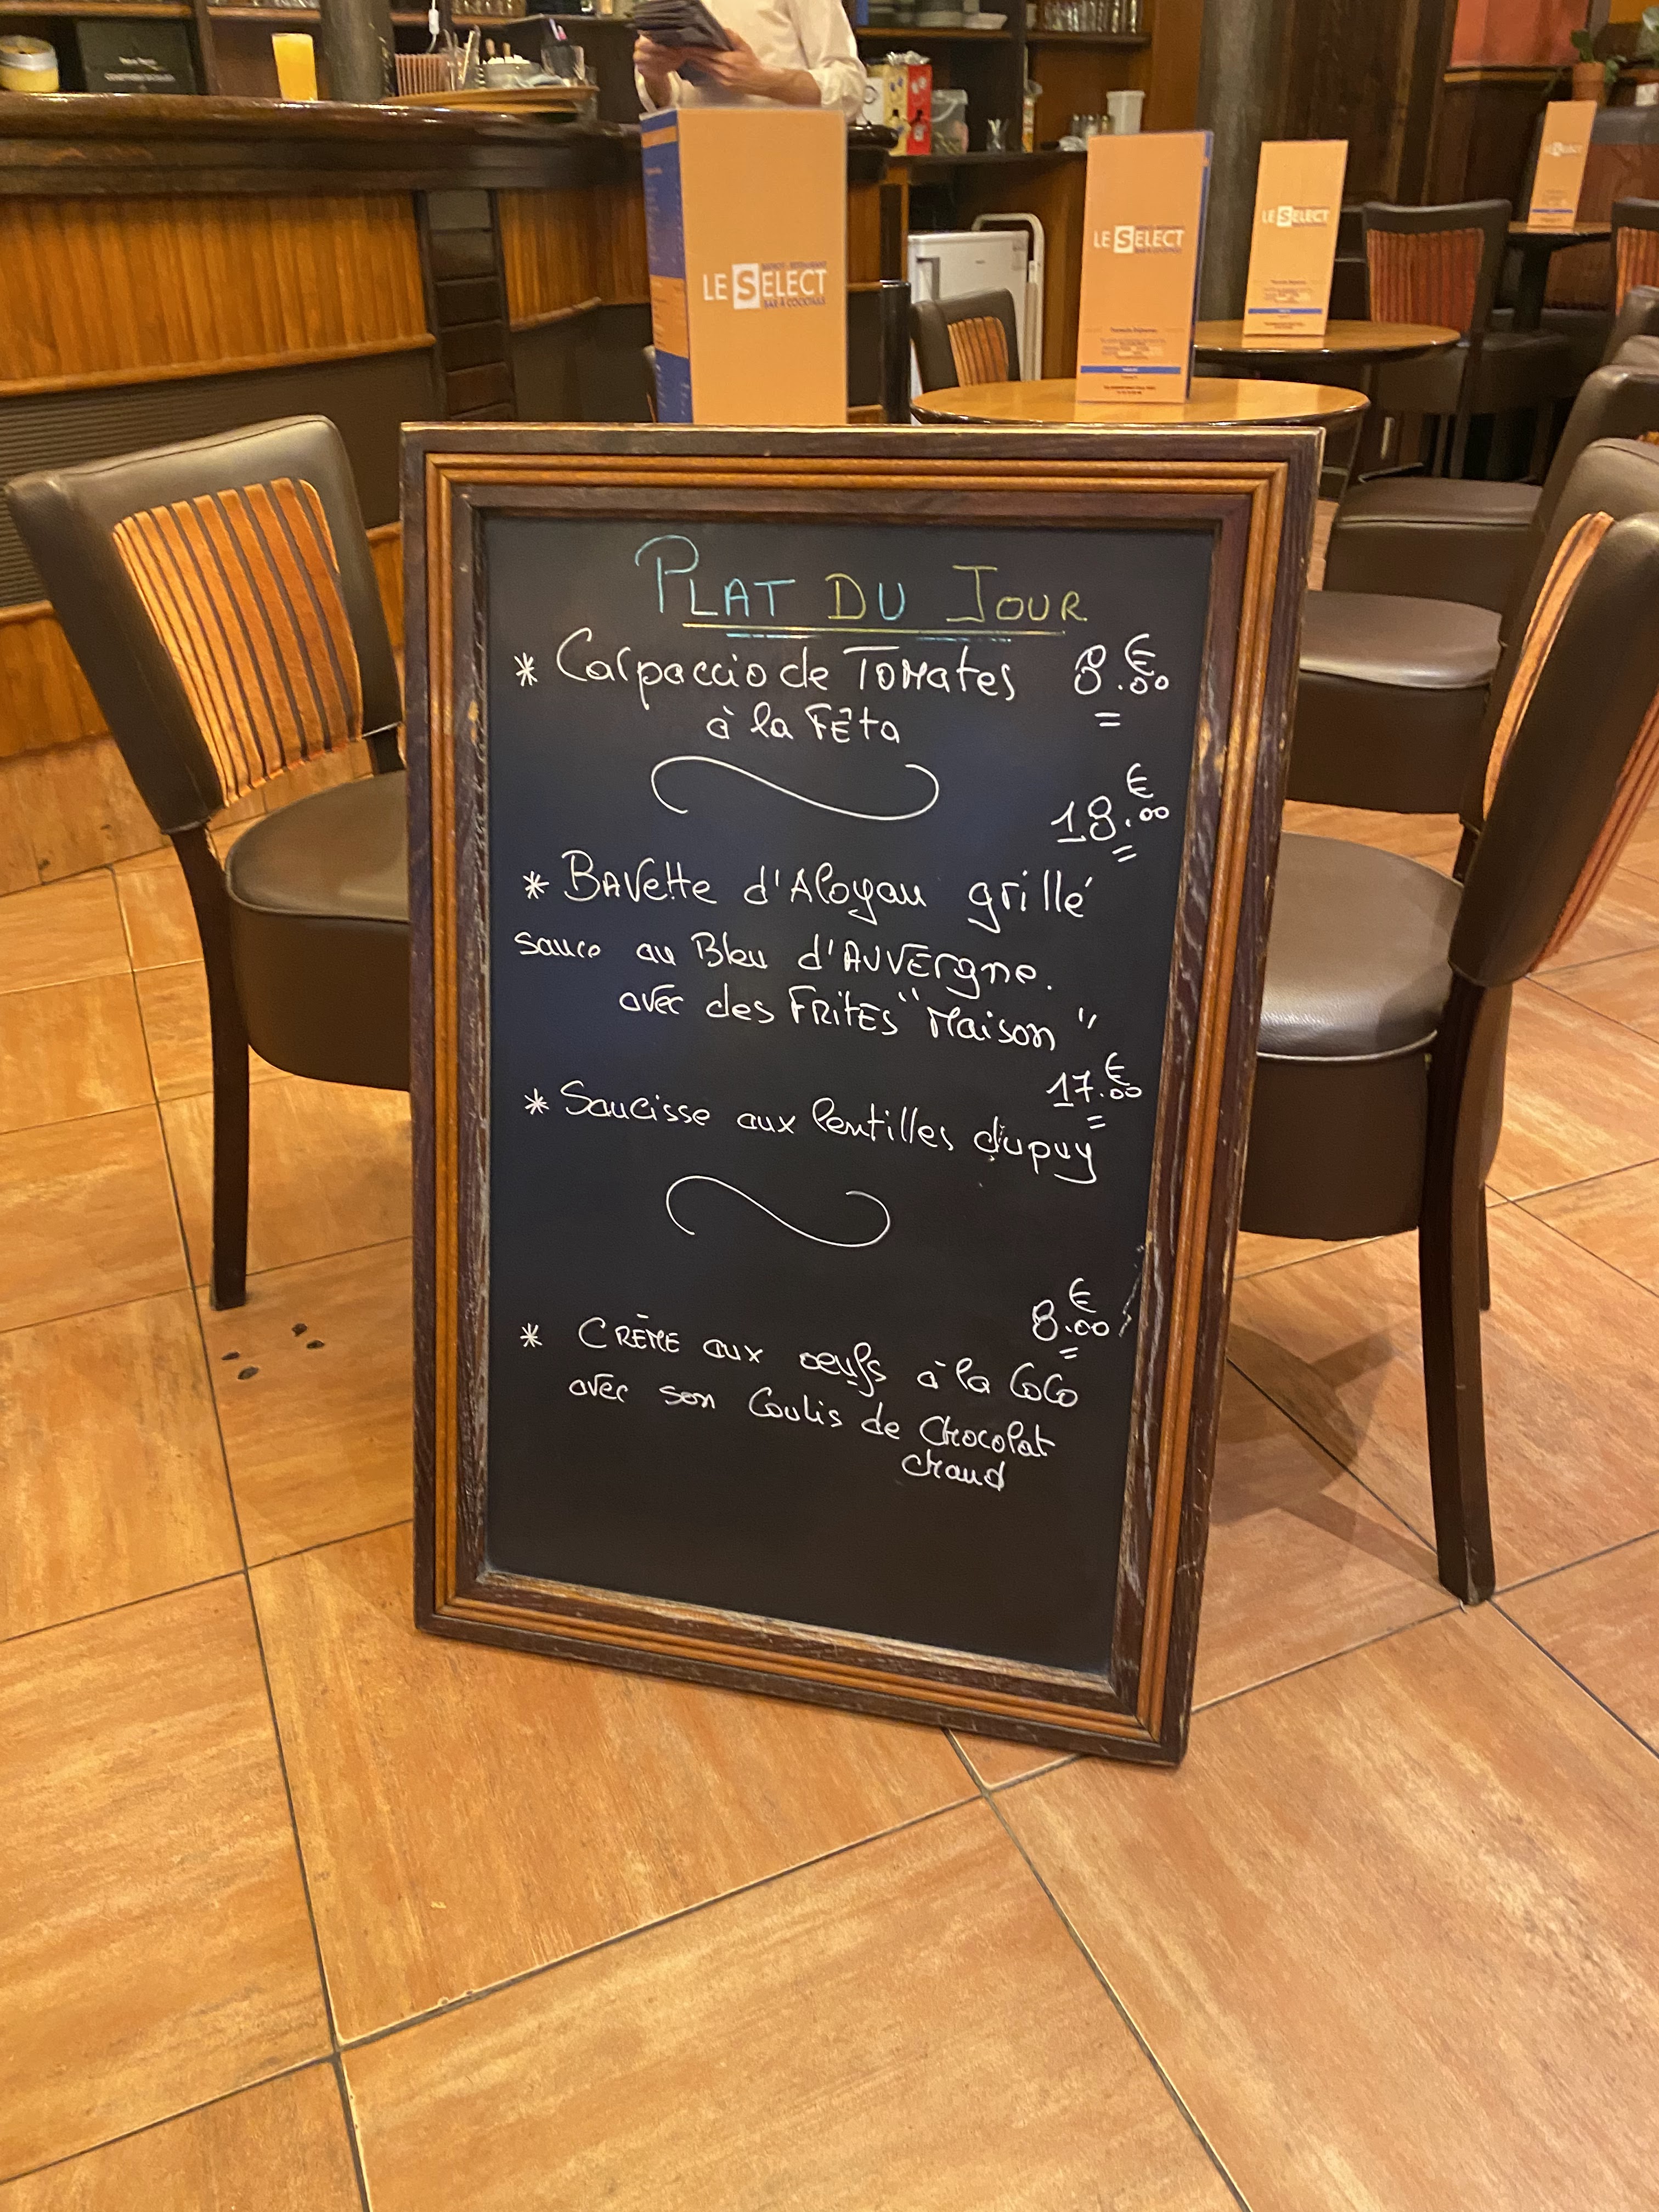 LE SELECT
BAR À COCKTAILS
LE SELECT
LE SELECT
LE SELECT
PLAT DU JOUR
* Carpaccio de Tomates 8.00 €
à la Fêta
18.00 €
* Bavette d'Aloyau grillé
sauce au Bleu d'Auvergne.
avec des Frites "Maison"
17.00 €
* Saucisse aux lentilles dupuy
8.00 €
* Crème aux oeufs à la Coco
avec son Coulis de Chocolat
chaud